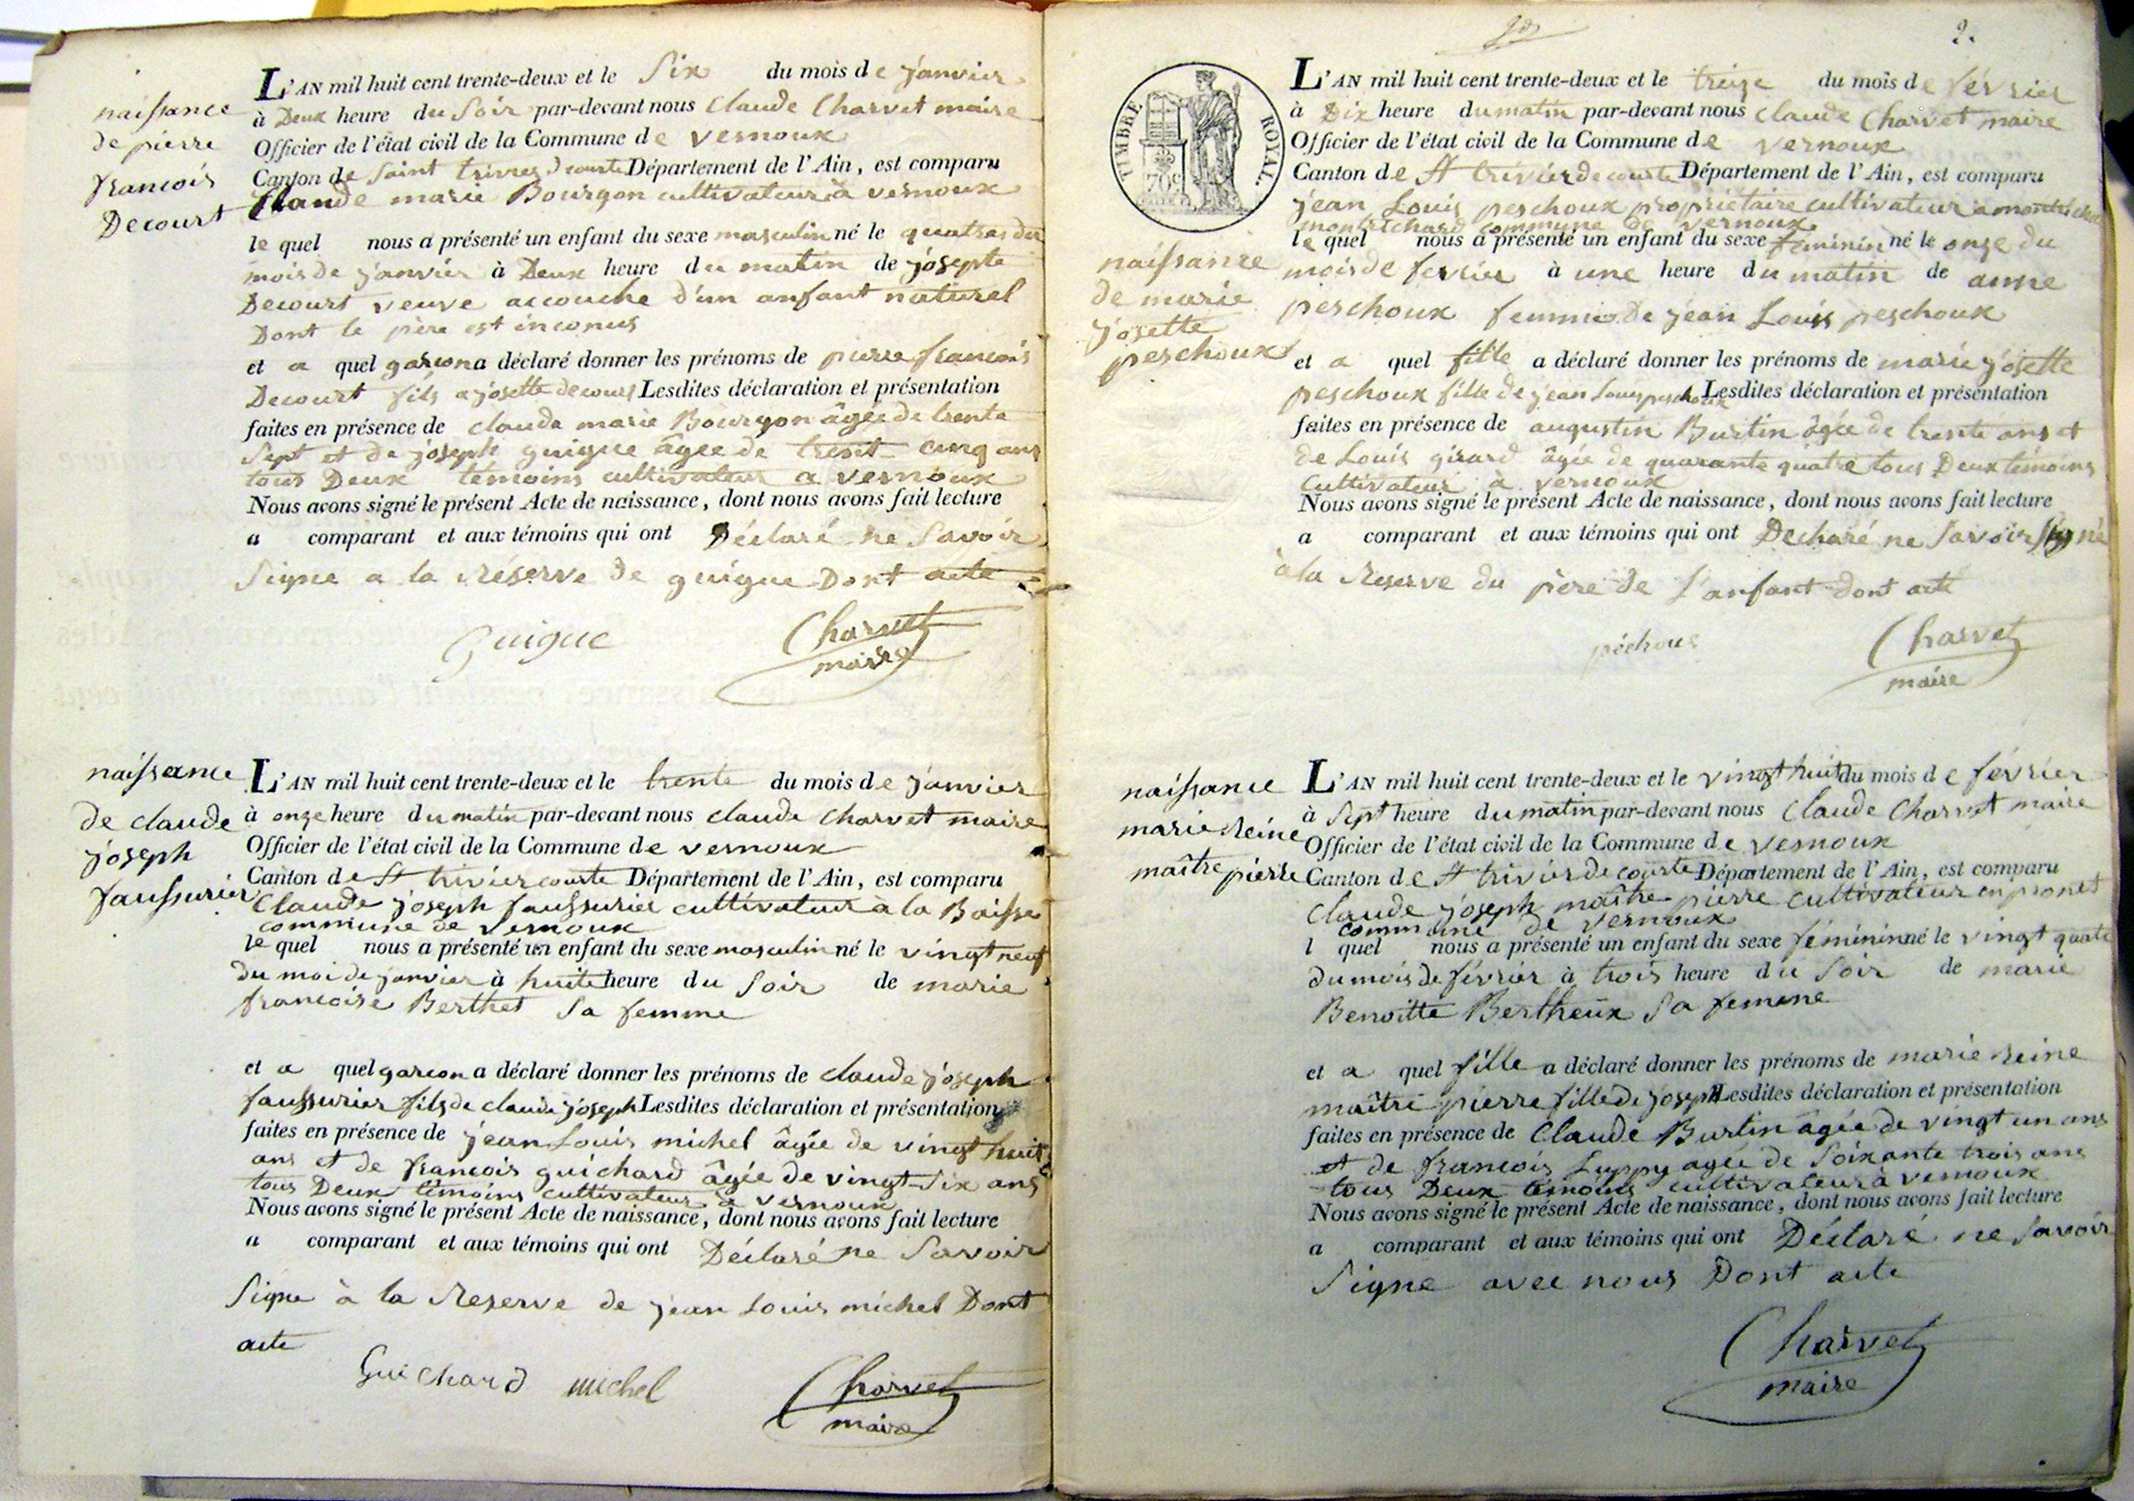 naissance
de pierre
francois
Decourt
L'AN mil huit cent trente-deux et le Six du mois de janvier
à Deux heure du Soir par-devant nous Claude Charvet maire
Officier de l'état civil de la Commune de vernoux
Canton de Saint trivier de courte Département de l'Ain, est comparu
Claude marie Bourgon cultivateur à vernoux
le quel nous a présenté un enfant du sexe masculin né le quatres du
mois de janvier à Deux heure du matin de josepte
Decourt veuve accouche d'un anfant naturel
Dont le père est inconus
et a quel garcon a déclaré donner les prénoms de pierre francois
Decourt fils a josette decourt Lesdites déclaration et présentation
faites en présence de claude marie Bourgon âgée de trente
Sept et de joseph guigue âgée de trent cinq ans
tous Deux témoins cultivateur a vernoux
Nous avons signé le présent Acte de naissance, dont nous avons fait lecture
a comparant et aux témoins qui ont Déclaré ne Savoir
Signe a la Réserve de guigue Dont acte
Guigue Charvet
maire
naissance
de claude
joseph
faussurier
L'AN mil huit cent trente-deux et le trente du mois de janvier
à onze heure du matin par-devant nous claude Charvet maire
Officier de l'état civil de la Commune de vernoux
Canton de St trivier courte Département de l'Ain, est comparu
Claude joseph faussurier cultivateur à la Baisse
commune de vernoux
le quel nous a présenté un enfant du sexe masculin né le vingt neuf
du moi de janvier à huite heure du Soir de marie
francoise Berthet Sa femme
et a quel garcon a déclaré donner les prénoms de claude joseph
faussurier fils de claude joseph Lesdites déclaration et présentation
faites en présence de jean Louis michel âgée de vingt huit
ans et de francois guichard âgée de vingt-Six ans
tous Deux témoins cultivateur à vernoux
Nous avons signé le présent Acte de naissance, dont nous avons fait lecture
a comparant et aux témoins qui ont Déclaré ne Savoir
Signe à la Reserve de jean Louis michel Dont
acte
Guichard michel Charvet
maire
2.
TIMBRE ROYAL.
70c
naissance
de marie
josette
peschoux
L'AN mil huit cent trente-deux et le treize du mois de février
à Dix heure du matin par-devant nous claude Charvet maire
Officier de l'état civil de la Commune de vernoux
Canton de St trivier de courte Département de l'Ain, est comparu
jean Louis peschoux propriétaire cultivateur a
montrichard commune de vernoux
le quel nous a présenté un enfant du sexe féminin né le onze du
mois de fevrier à une heure du matin de anne
peschoux femme De jean Louis peschoux
et a quel fille a déclaré donner les prénoms de marie josette
peschoux fille de jean Louis peschoux Lesdites déclaration et présentation
faites en présence de augustin Burtin âgée de trente ans et
de Louis girard âgée de quarante quatre tous Deux témoins
cultivateur à vernoux
Nous avons signé le présent Acte de naissance, dont nous avons fait lecture
a comparant et aux témoins qui ont Décharé ne Savoir Signé
à la Reserve du père de l'anfant dont acte
péchous Charvet
maire
naissance
marie reine
maître pierre
L'AN mil huit cent trente-deux et le vingt huit du mois de février
à Sept heure du matin par-devant nous Claude Charvet maire
Officier de l'état civil de la Commune de vernoux
Canton de St trivier de courte Département de l'Ain, est comparu
Claude joseph maître pierre cultivateur en pronet
commune de vernoux
l quel nous a présenté un enfant du sexe féminin né le vingt quatre
du mois de février à trois heure du Soir de marie
Benoitte Bertheux Sa femme
et a quel fille a déclaré donner les prénoms de marie reine
maître pierre fille de joseph Lesdites déclaration et présentation
faites en présence de Claude Burtin âgée de vingt un ans
et de francois agée de Soixante trois ans
tous Deux témoins cultivateur à vernoux
Nous avons signé le présent Acte de naissance, dont nous avons fait lecture
a comparant et aux témoins qui ont Déclaré ne Savoir
Signe avec nous Dont acte
Charvet
maire